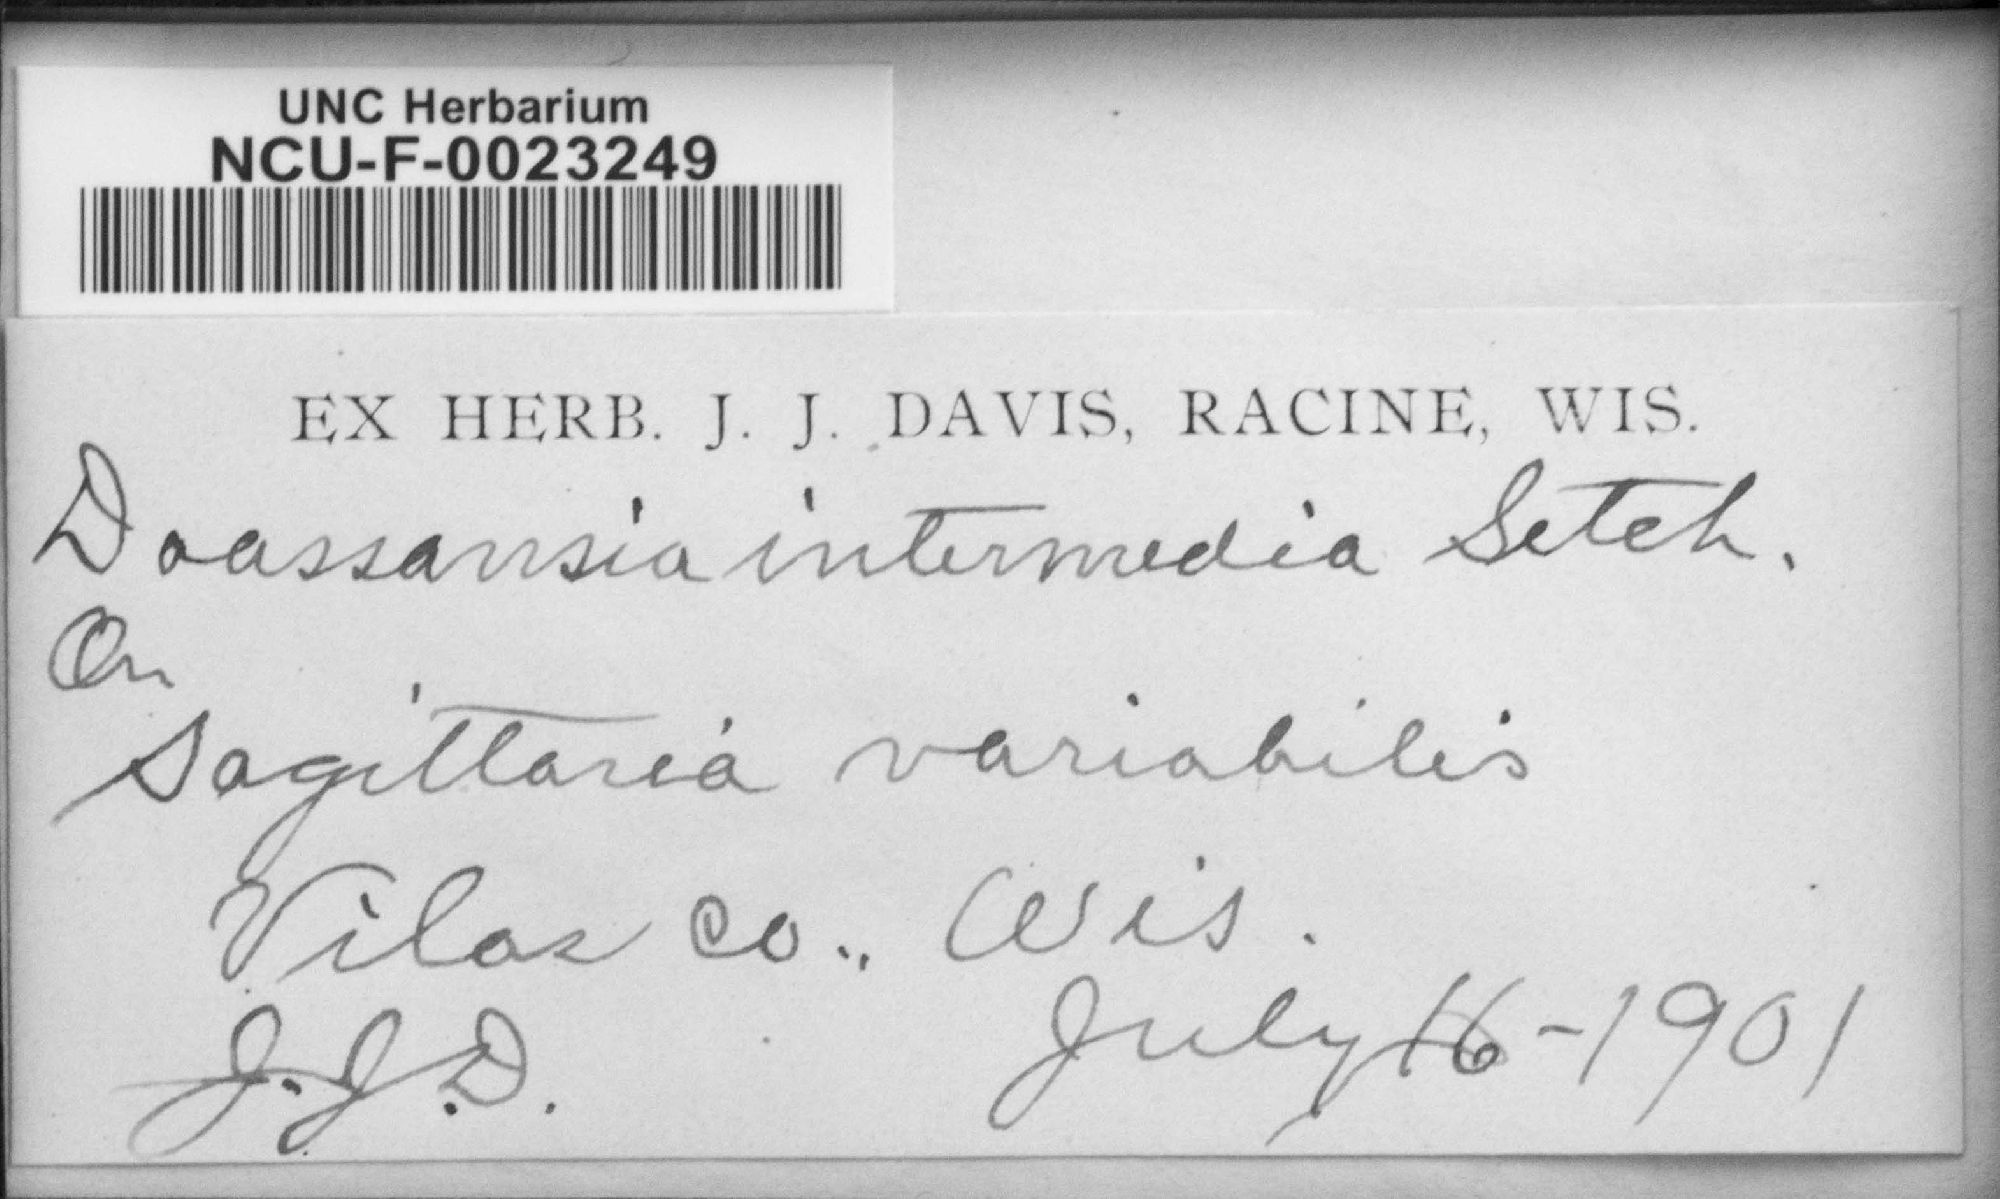 UNC Herbarium
NCU-F-0023249
EX HERB. J. J. DAVIS, RACINE, WIS.
Doassansia intermedia Setch.
On
Sagittaria variabilis
Vilas Co., Wis.
J. J. D. July 16-1901